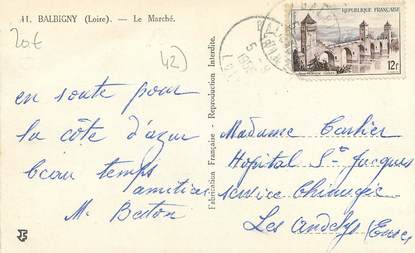 11. BALBIGNY (Loire). — Le Marché.
20€
42)
en route pour
la côte d'azur
beau temps
amitiés
M. Berton
Fabrication Française - Reproduction Interdite.
RÉPUBLIQUE FRANÇAISE
12f
Madame Cartier
Hôpital St Jacques
service Chirurgie
Les Andelys (Eure)